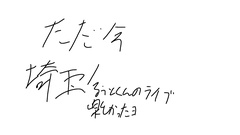 ただ今
埼玉!
るぅとくんのライブ
楽しかったヨ